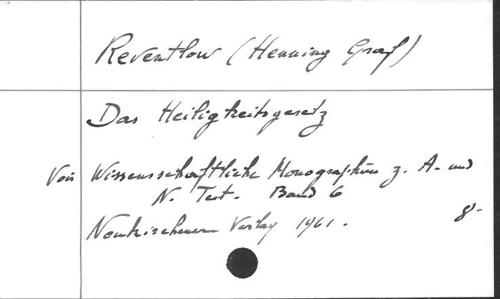 Reventlow (Henning Graf)
Das Heiligkeitsgesetz
Voir Wissensschaftliche Monographien z. A. und
N. Test. Band 6
Neukirchener Verlag 1961. 8-